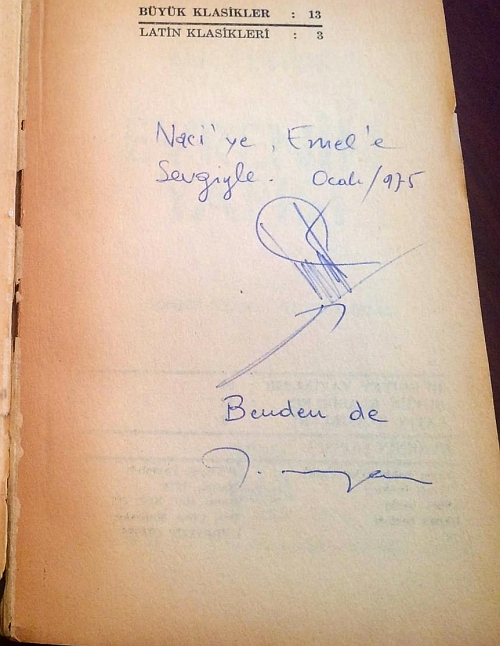 BÜYÜK KLASİKLER : 13
LATİN KLASİKLERİ : 3
Naci'ye, Emel'e
Sevgiyle. Ocak/975
Benden de